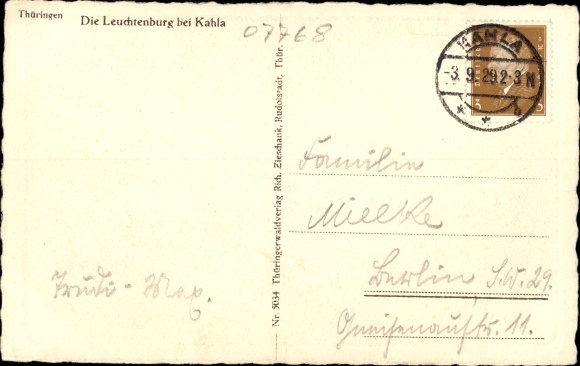 Thüringen Die Leuchtenburg bei Kahla
07768
KAHLA
-3.9.29.2-3N
* * b
3 3
Nr. 5034 Thüringerwaldverlag Rich. Zieschank, Rudolstadt, Thür.
Familie
Mielke
Berlin S.W. 29.
Gneisenaustr. 11.
Trudi - Max.